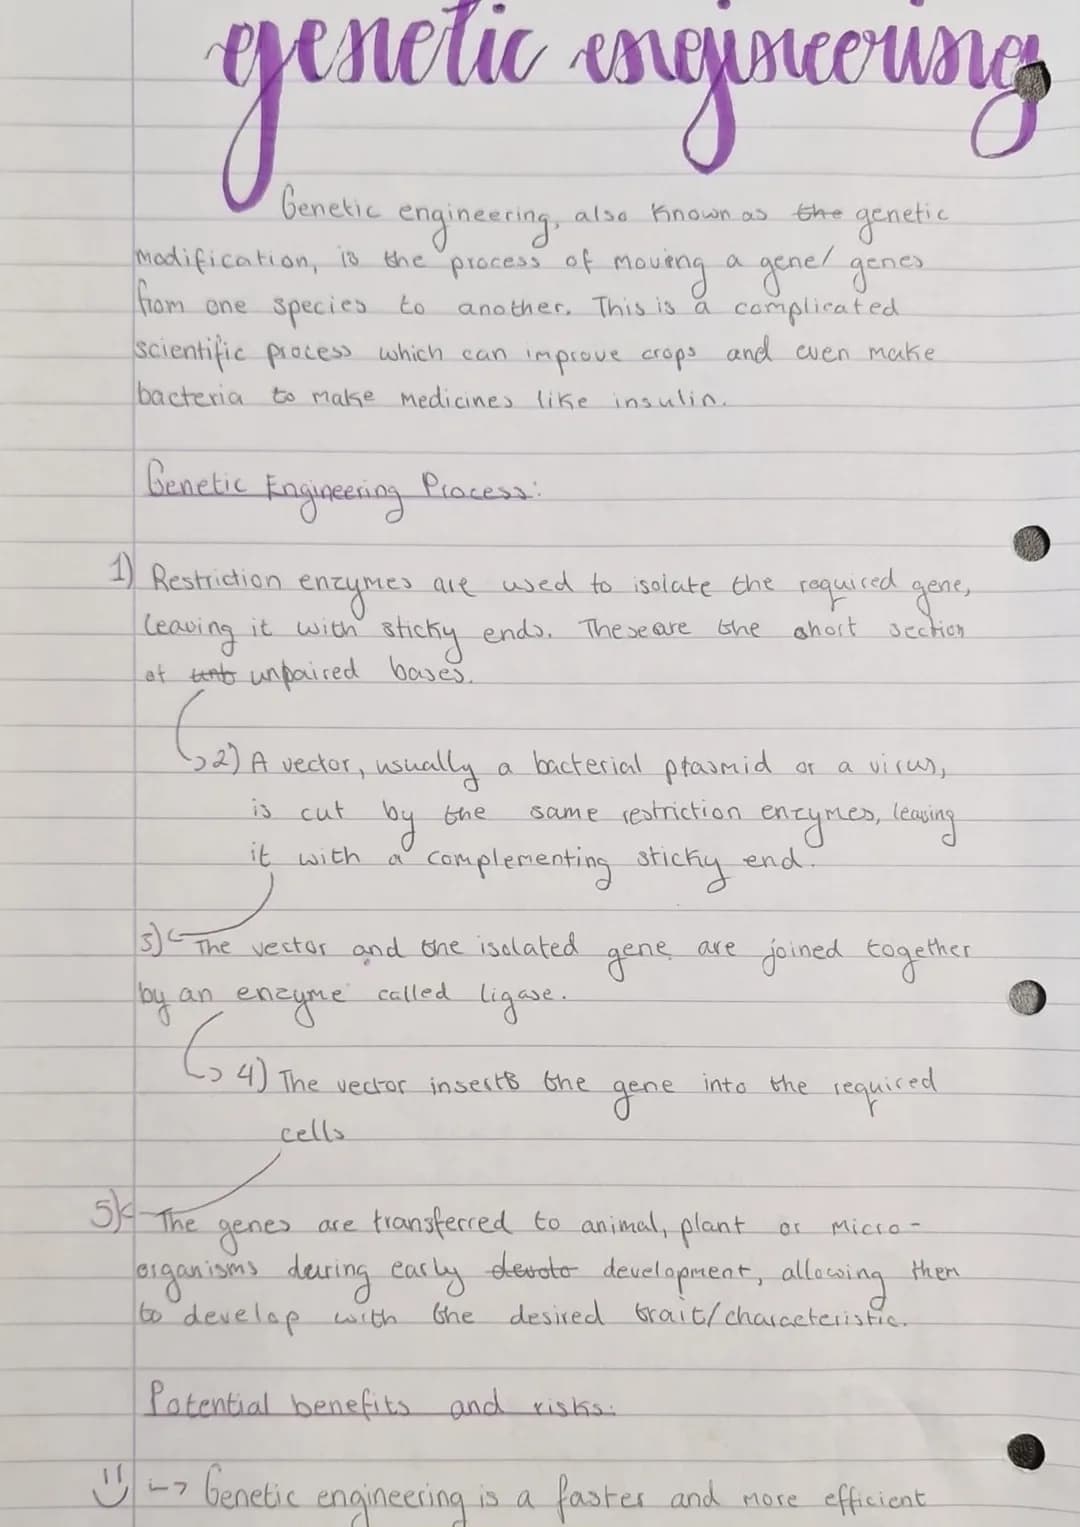 genetic engineering
Genetic engineering, also known as the genetic
modification, is the process of moving a gene/ genes
from one species to another. This is a complicated
scientific process which can improve crops and even make
bacteria to make medicines like insulin.
Genetic Engineering Process:
1) Restriction enzymes are used to isolate the required gene,
leaving it with sticky ends. These are the short section
of unpaired bases.
↳ 2) A vector, usually a bacterial plasmid or a virus,
is cut by the same restriction enzymes, leaving
it with a complementing sticky end.
3) The vector and the isolated gene are joined together
by an enzyme called ligase.
↳ 4) The vector inserts the gene into the required
cells
5) The genes are transferred to animal, plant or micro-
organisms during early development, allowing them
to develop with the desired trait/characteristic.
Potential benefits and risks:
↳ Genetic engineering is a faster and more efficient